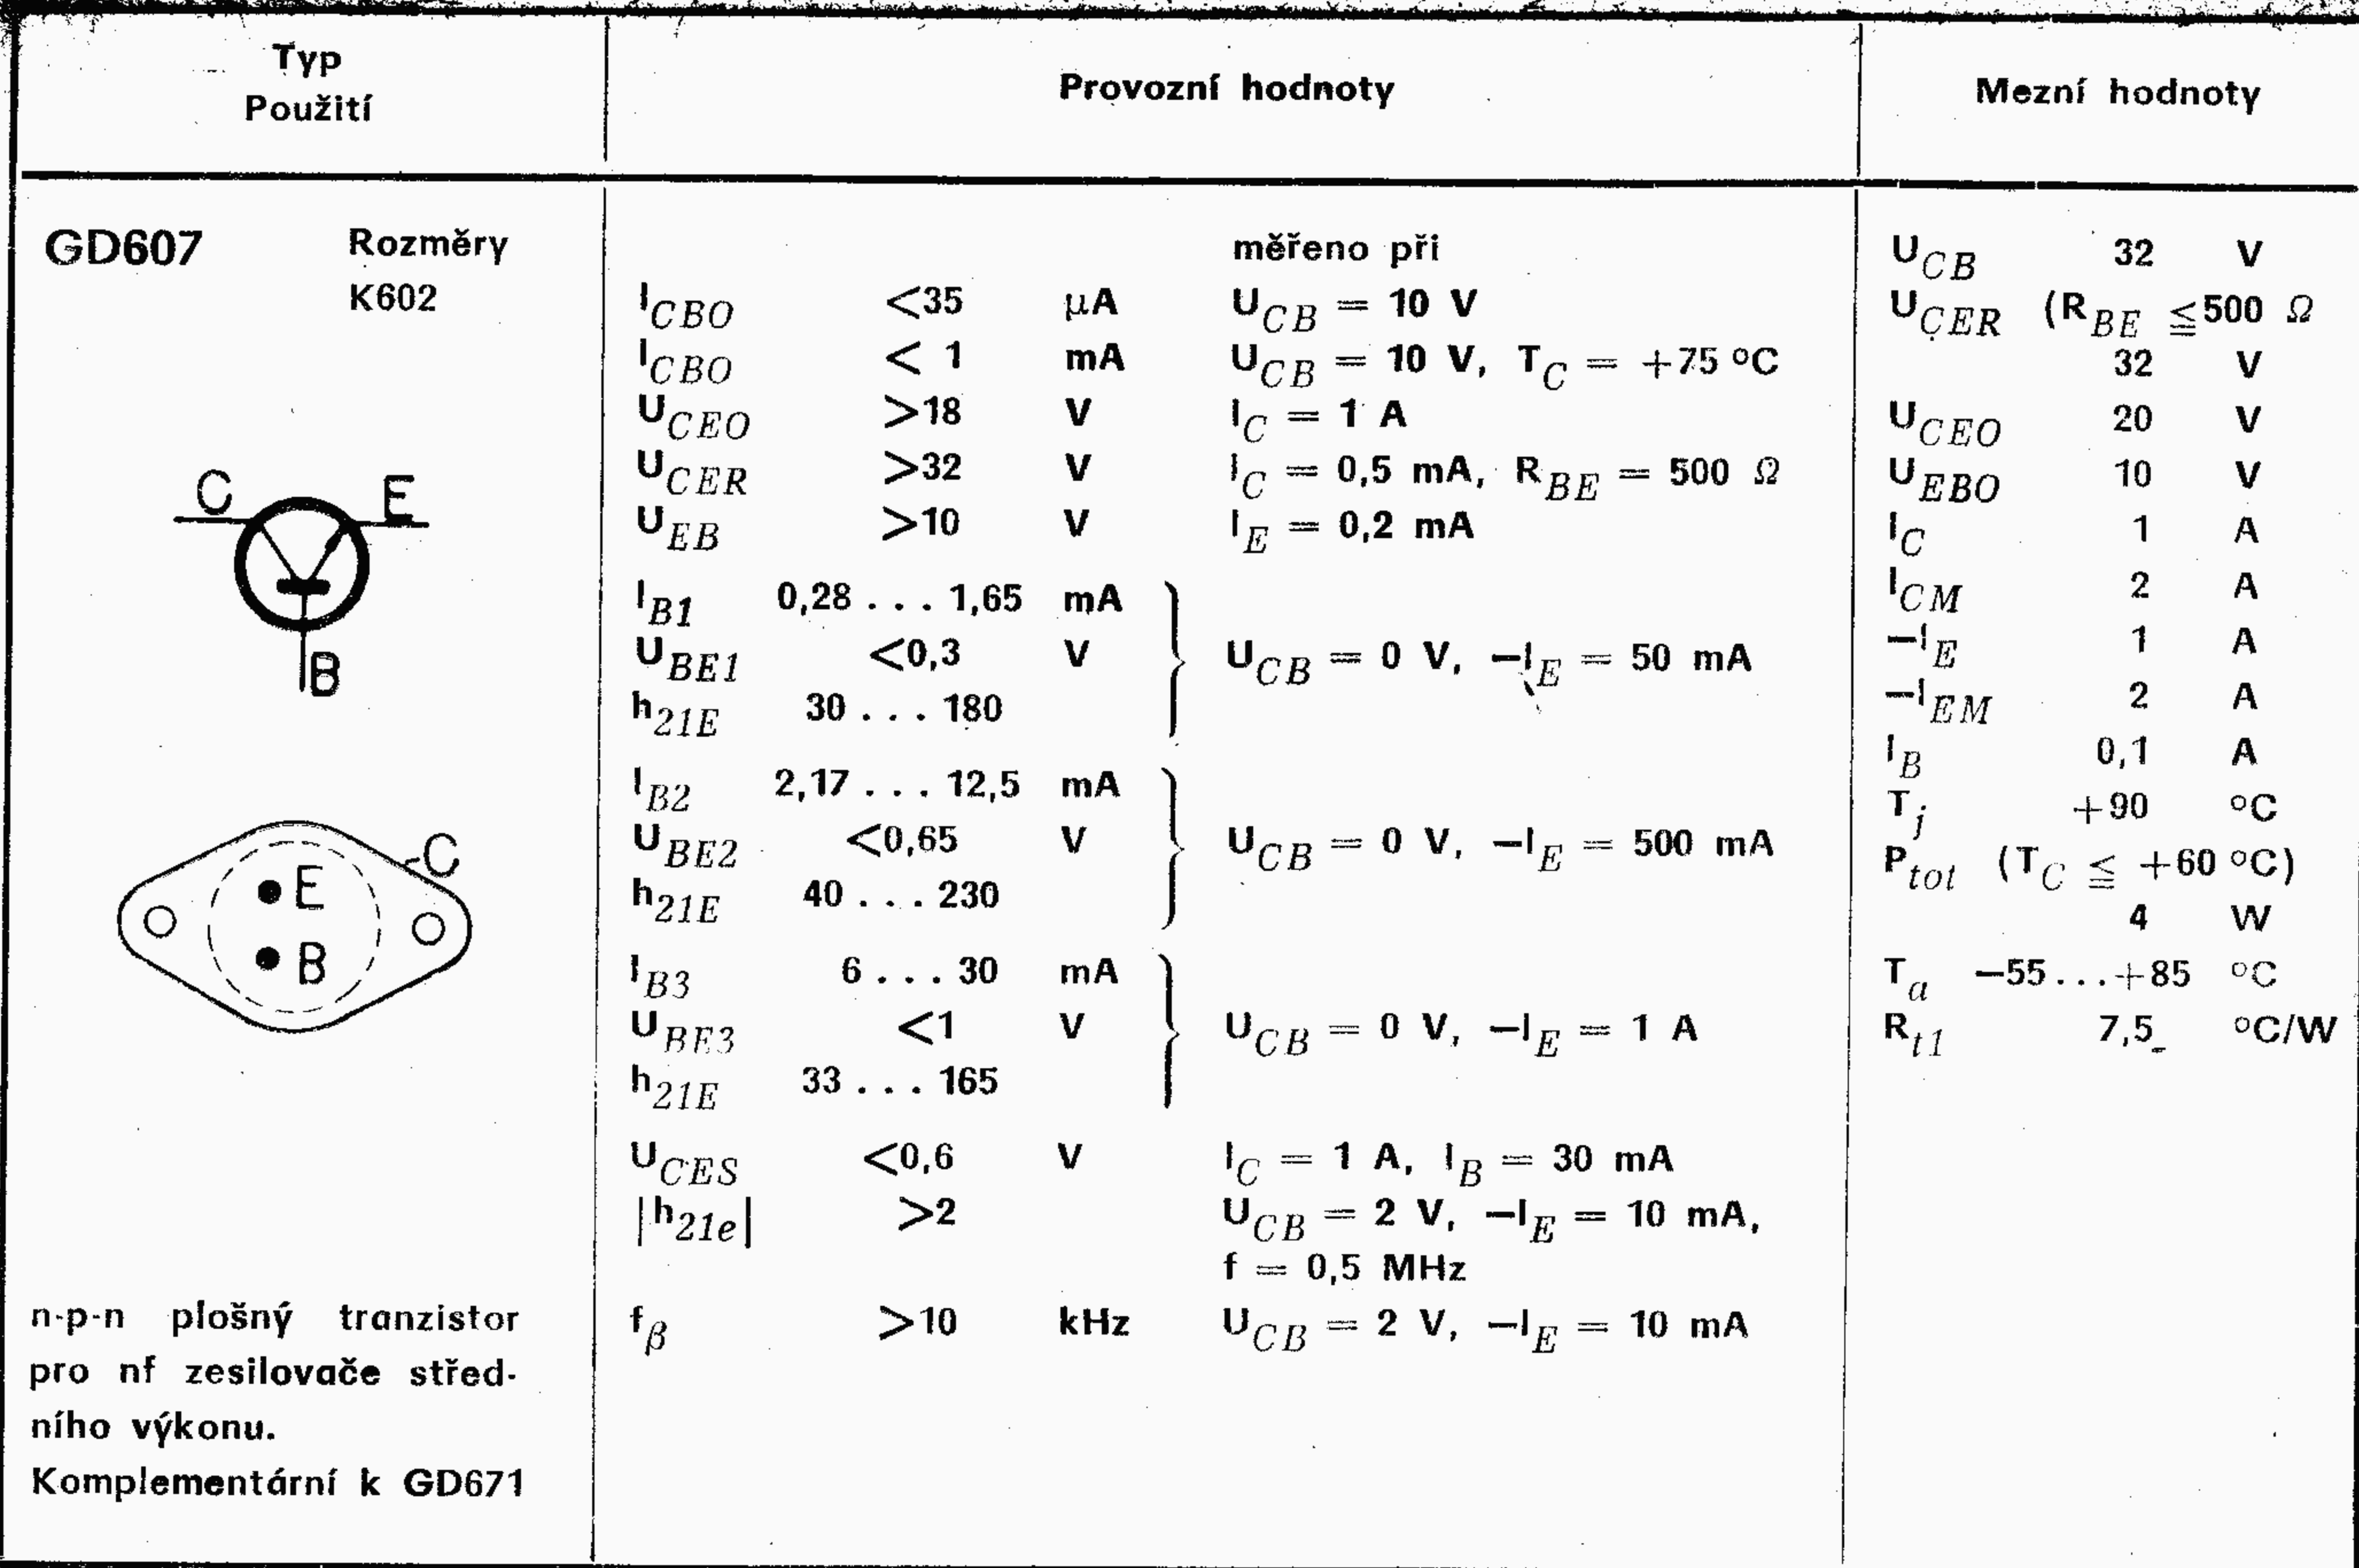 Typ
Použití
Provozní hodnoty
Mezní hodnoty
GD607 Rozměry
K602
C E
B
E C
B
n-p-n plošný tranzistor
pro nf zesilovače střed-
ního výkonu.
Komplementární k GD671
měřeno při
I_CBO <35 μA U_CB = 10 V
I_CBO < 1 mA U_CB = 10 V, T_C = +75 °C
U_CEO >18 V I_C = 1 A
U_CER >32 V I_C = 0,5 mA, R_BE = 500 Ω
U_EB >10 V I_E = 0,2 mA
I_B1 0,28 . . . 1,65 mA
U_BE1 <0,3 V U_CB = 0 V, −I_E = 50 mA
h_21E 30 . . . 180
I_B2 2,17 . . . 12,5 mA
U_BE2 <0,65 V U_CB = 0 V, −I_E = 500 mA
h_21E 40 . . . 230
I_B3 6 . . . 30 mA
U_BE3 <1 V U_CB = 0 V, −I_E = 1 A
h_21E 33 . . . 165
U_CES <0,6 V I_C = 1 A, I_B = 30 mA
|h_21e| >2 U_CB = 2 V, −I_E = 10 mA,
f = 0,5 MHz
f_β >10 kHz U_CB = 2 V, −I_E = 10 mA
U_CB 32 V
U_CER (R_BE ≦ 500 Ω
32 V
U_CEO 20 V
U_EBO 10 V
I_C 1 A
I_CM 2 A
−I_E 1 A
−I_EM 2 A
I_B 0,1 A
T_j +90 °C
P_tot (T_C ≦ +60 °C)
4 W
T_a −55...+85 °C
R_t1 7,5 °C/W